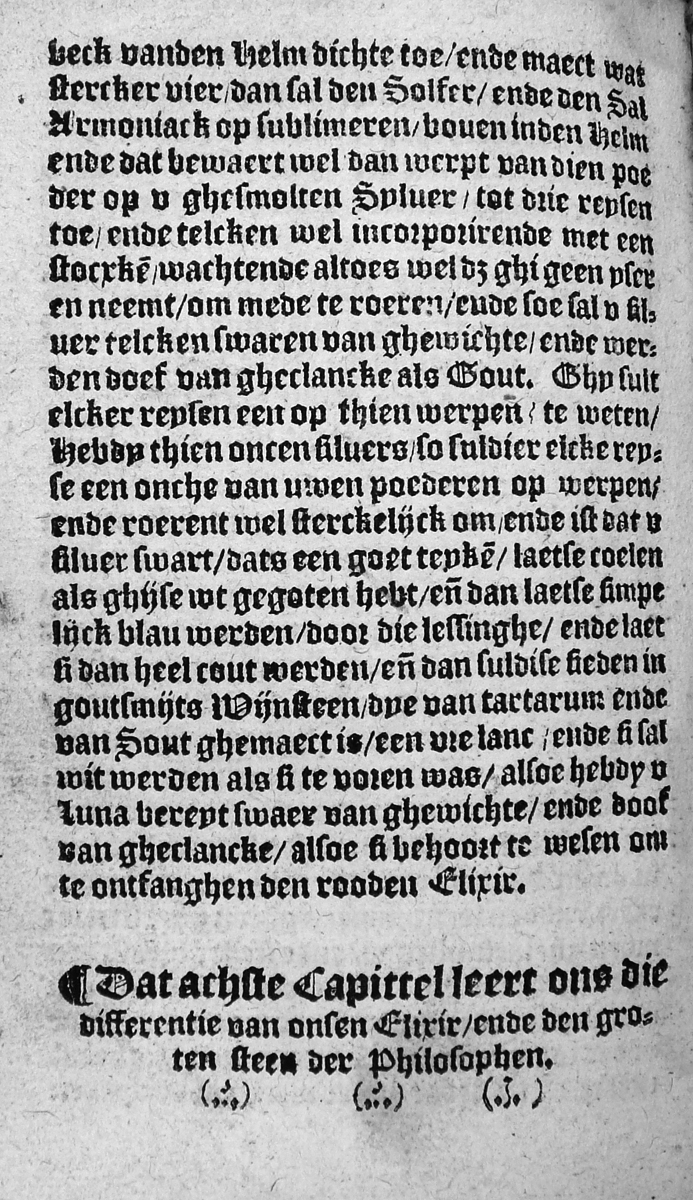 beck vanden Helm dichte toe/ende maect wat
stercker vier/dan sal den Solfer/ ende den Sal
Armoniack op sublimeren/boven inden Helm
ende dat bewaert wel dan werpt van dien poe
der op v ghesmolten Sylver/ tot drie reysen
toe/ ende telcken wel incorporirende met een
stocxkẽ/wachtende altoes wel dʒ ghi geen yser
en neemt/om mede te roeren/ende soe sal v sil⸗
uer telcken swaren van ghewichte/ ende wer⸗
den doef van gheclancke als Gout. Ghy sult
elcker reysen een op thien werpen/ te weten/
Hebdy thien oncen siluers/so suldier elcke rey⸗
se een onche van uwen poederen op werpen/
ende roerent wel sterckelijck om/ende ist dat v
siluer swart/dats een goet teykẽ/ laetse coelen
als ghijse wt gegoten hebt/eñ dan laetse simpe
lijck blau werden/door die lessinghe/ ende laet
si dan heel cout werden/eñ dan suldise sieden in
goutsmijts Wijnsteen/dye van tartarum ende
van Sout ghemaect is/een vre lanc /ende si sal
wit werden als si te voren was/ alsoe hebdy v
Luna bereyt swaer van ghewichte/ ende doof
van gheclancke/ alsoe si behoort te wesen om
te ontfanghen den rooden Elixir.
¶ Dat achste Capittel leert ons die
differentie van onsen Elixir/ende den gro⸗
ten steen der Philosophen.